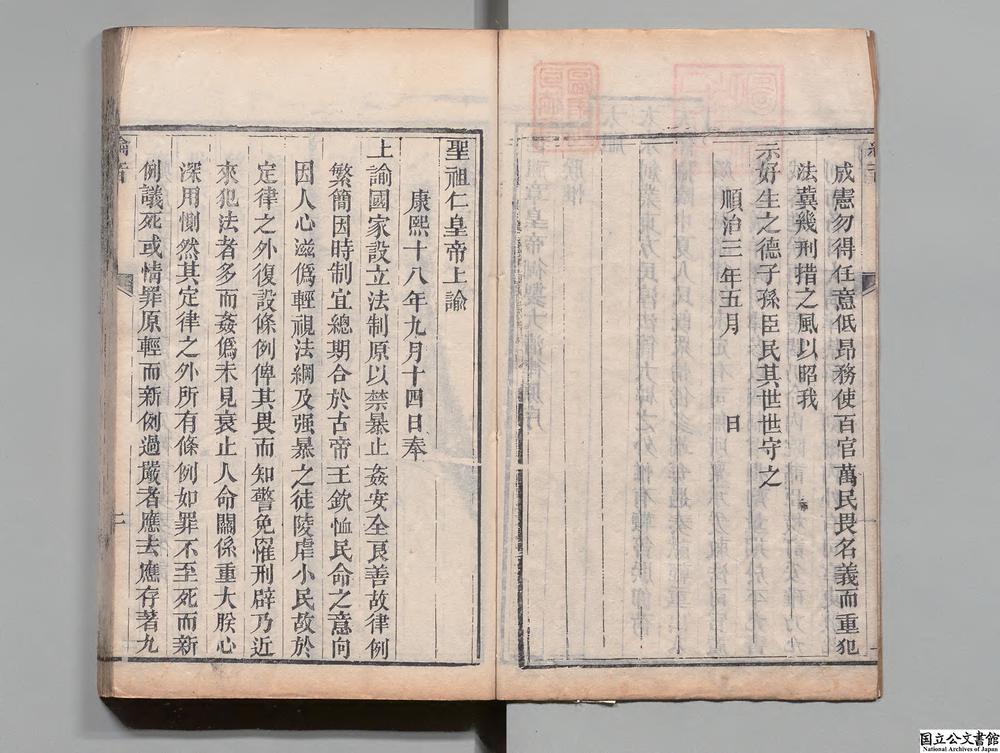 成憲勿得任意低昂務使百官萬民畏名義而重犯
法冀幾刑措之風以昭我
祖宗好生之德子孫臣民其世世守之
順治三年五月　日
聖祖仁皇帝上諭
康熙十八年九月十四日奉
上諭國家設立法制原以禁暴止姦安全良善故律例
繁簡因時制宜總期合於古帝王欽恤民命之意向
因人心滋僞輕視法網及强暴之徒陵虐小民故於
定律之外復設條例俾其畏而知警免罹刑辟乃近
來犯法者多而姦僞未見衰止人命關係重大朕心
深用惻然其定律之外所有條例如罪不至死而新
例議死或情罪原輕而新例過嚴者應去應存著九
二
国立公文書館
National Archives of Japan